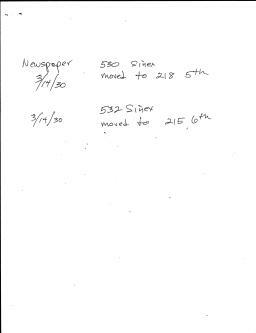 Newspaper 530 Sinex
3/14/30 moved to 218 5th
532 Sinex
3/14/30 moved to 215 6th